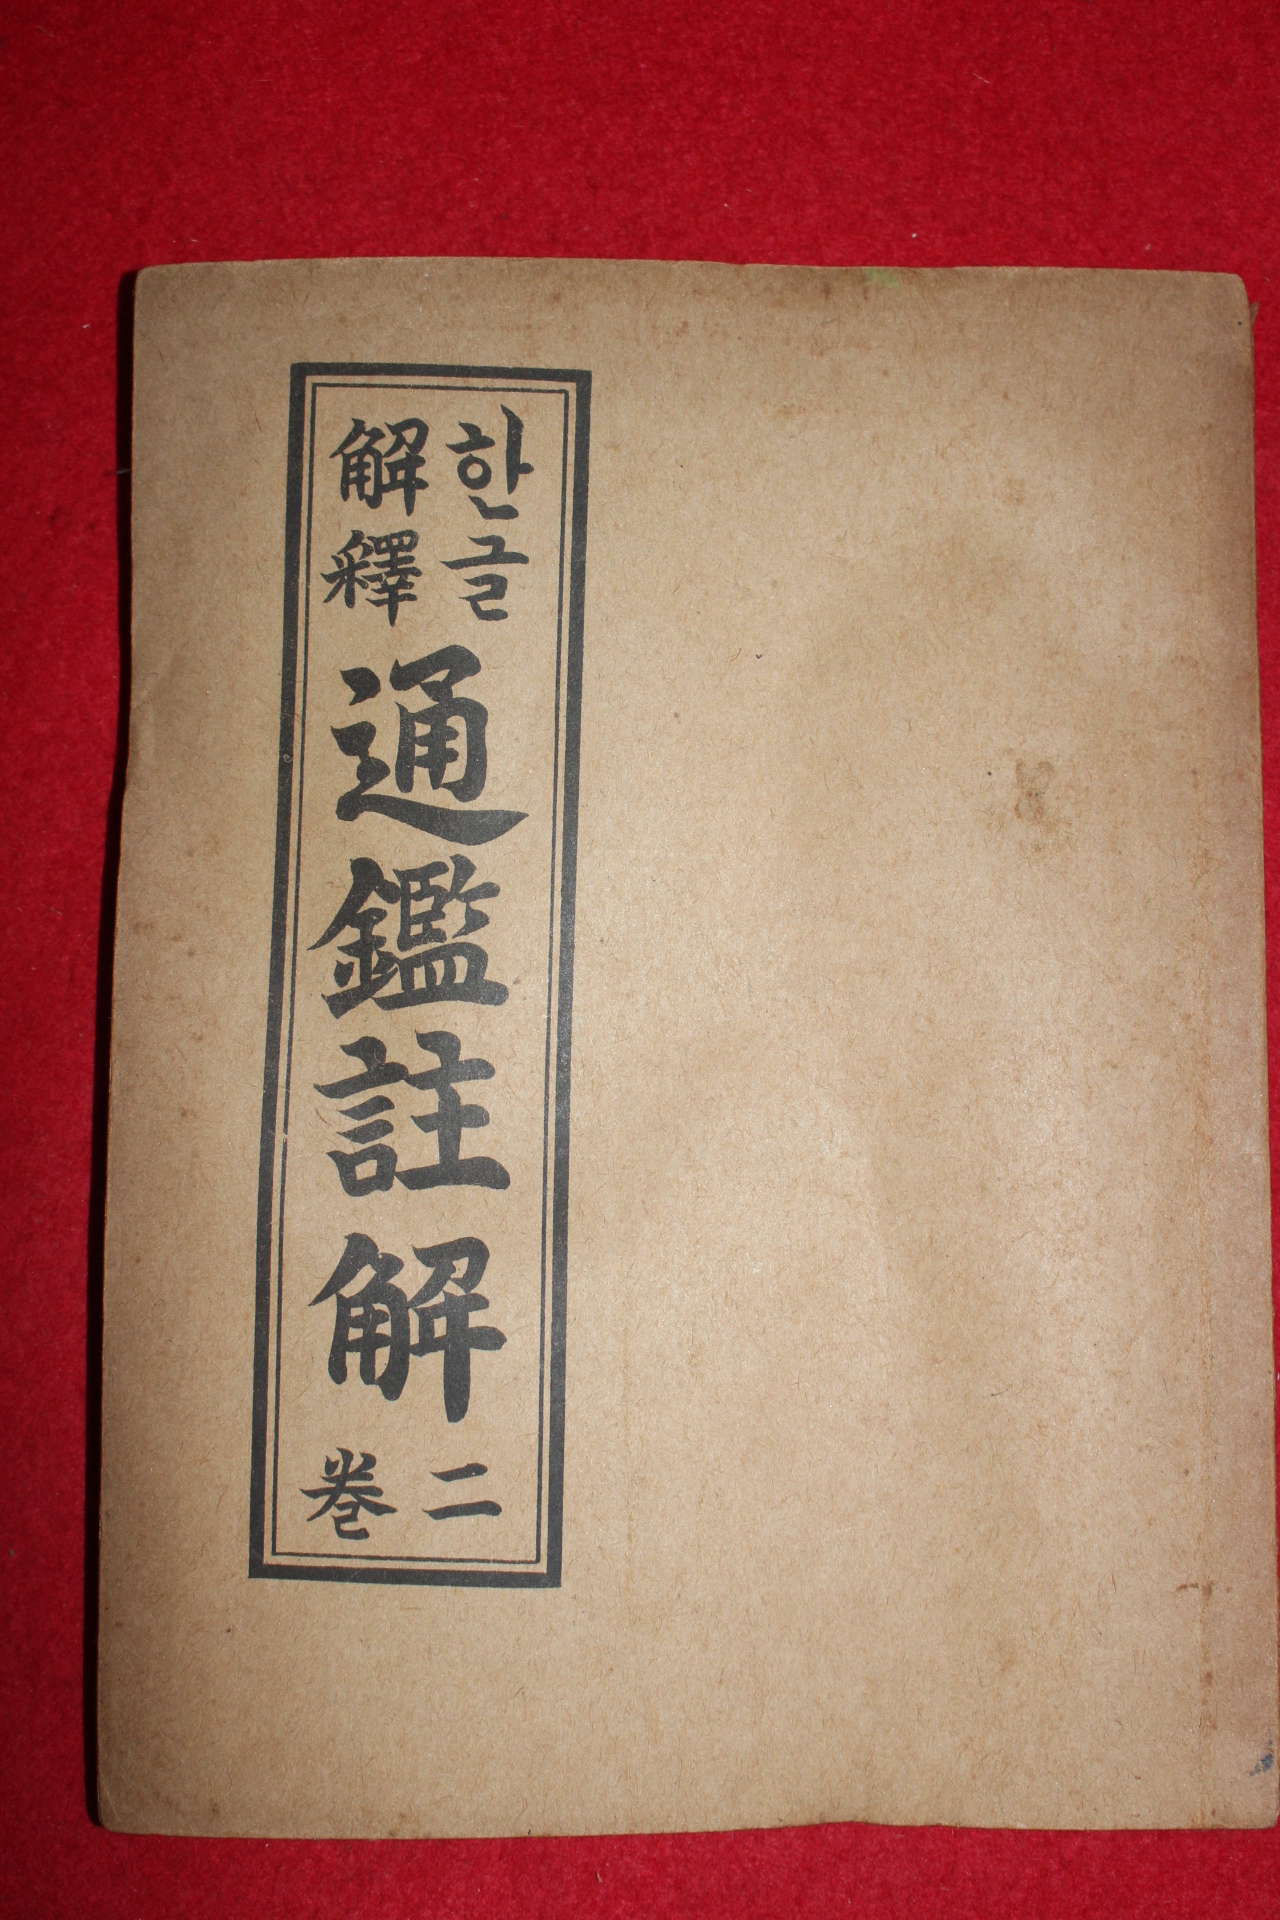 한글
解釋
通鑑註解
二
卷